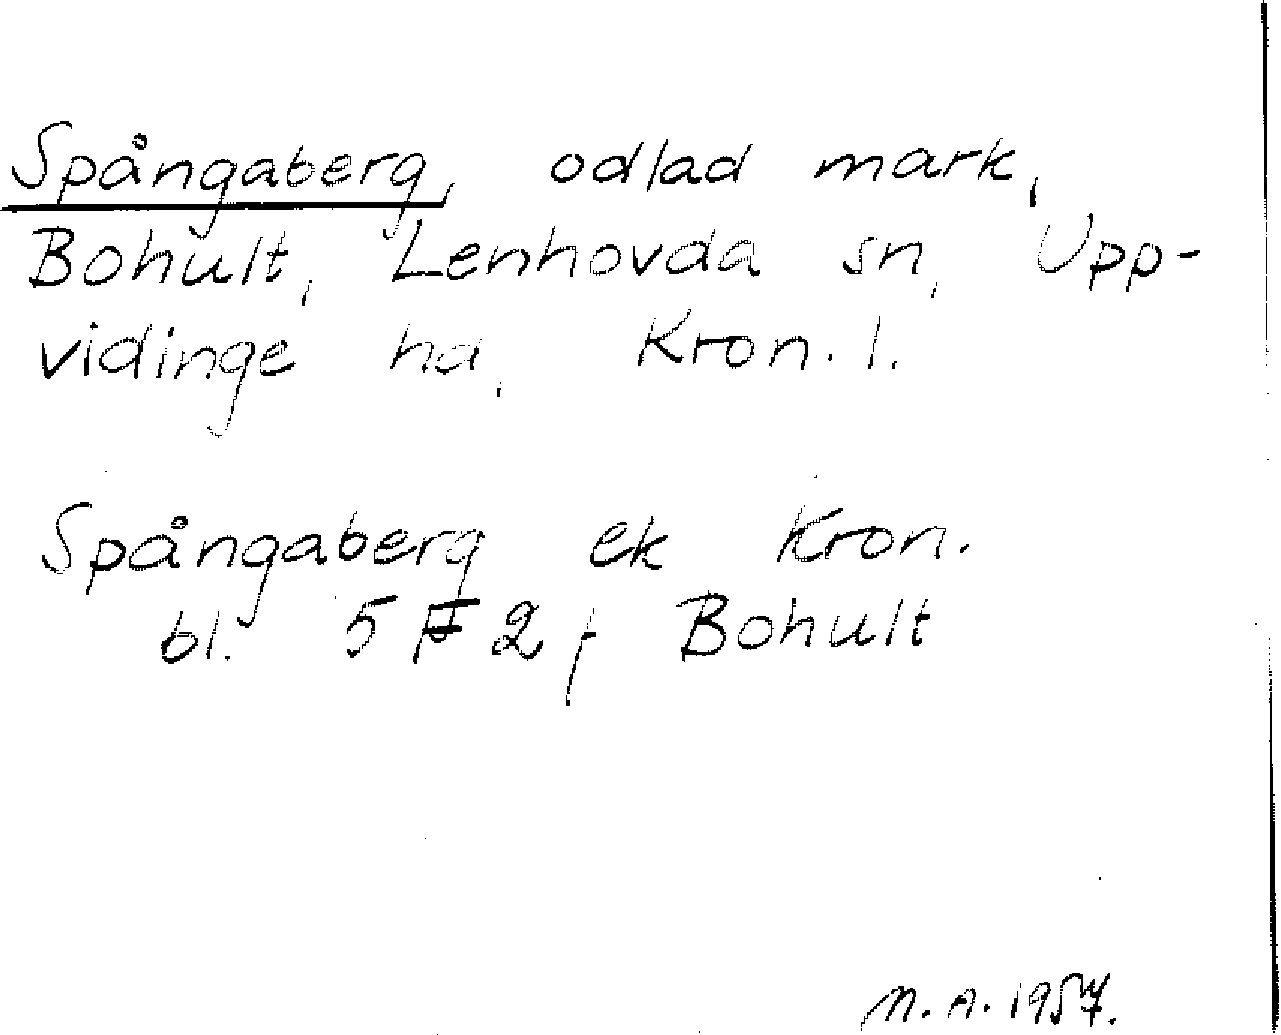 Spångaberg, odlad mark,
Bohult, Lenhovda sn, Upp-
vidinge hd, Kron. l.
Spångaberg ek Kron.
bl. 5 F 2 f Bohult
N. A. 1957.